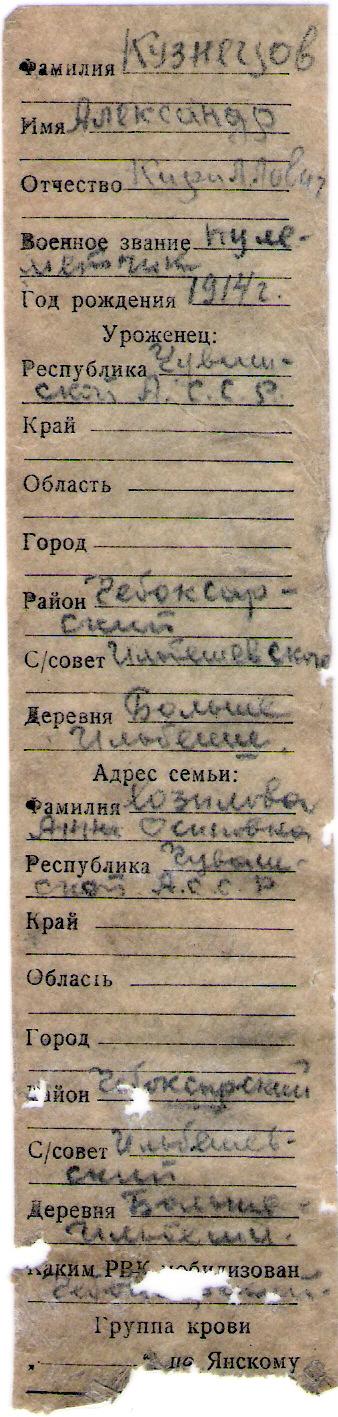 Фамилия Кузнецов
Имя Александр
Отчество Кириллович
Военное звание Пуле-
метчик
Год рождения 1914 г.
Уроженец:
Республика Чуваш-
ской А.С.С.Р.
Край
Область
Город
Район Чебоксар-
ский
С/совет
Деревня Больше
Адрес семьи:
Фамилия
Анна
Республика Чуваш-
ской А.С.С.Р
Край
Область
Город
айон Чебоксарский
С/совет
ский
Деревня Больше-
Каким РВК мобилизован
Группа крови
по Янскому